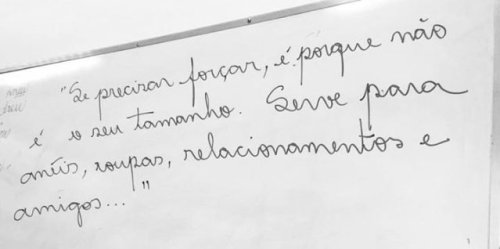 "Se precisar forçar, é porque não
é o seu tamanho. Serve para
anéis, roupas, relacionamentos e
amigos..."